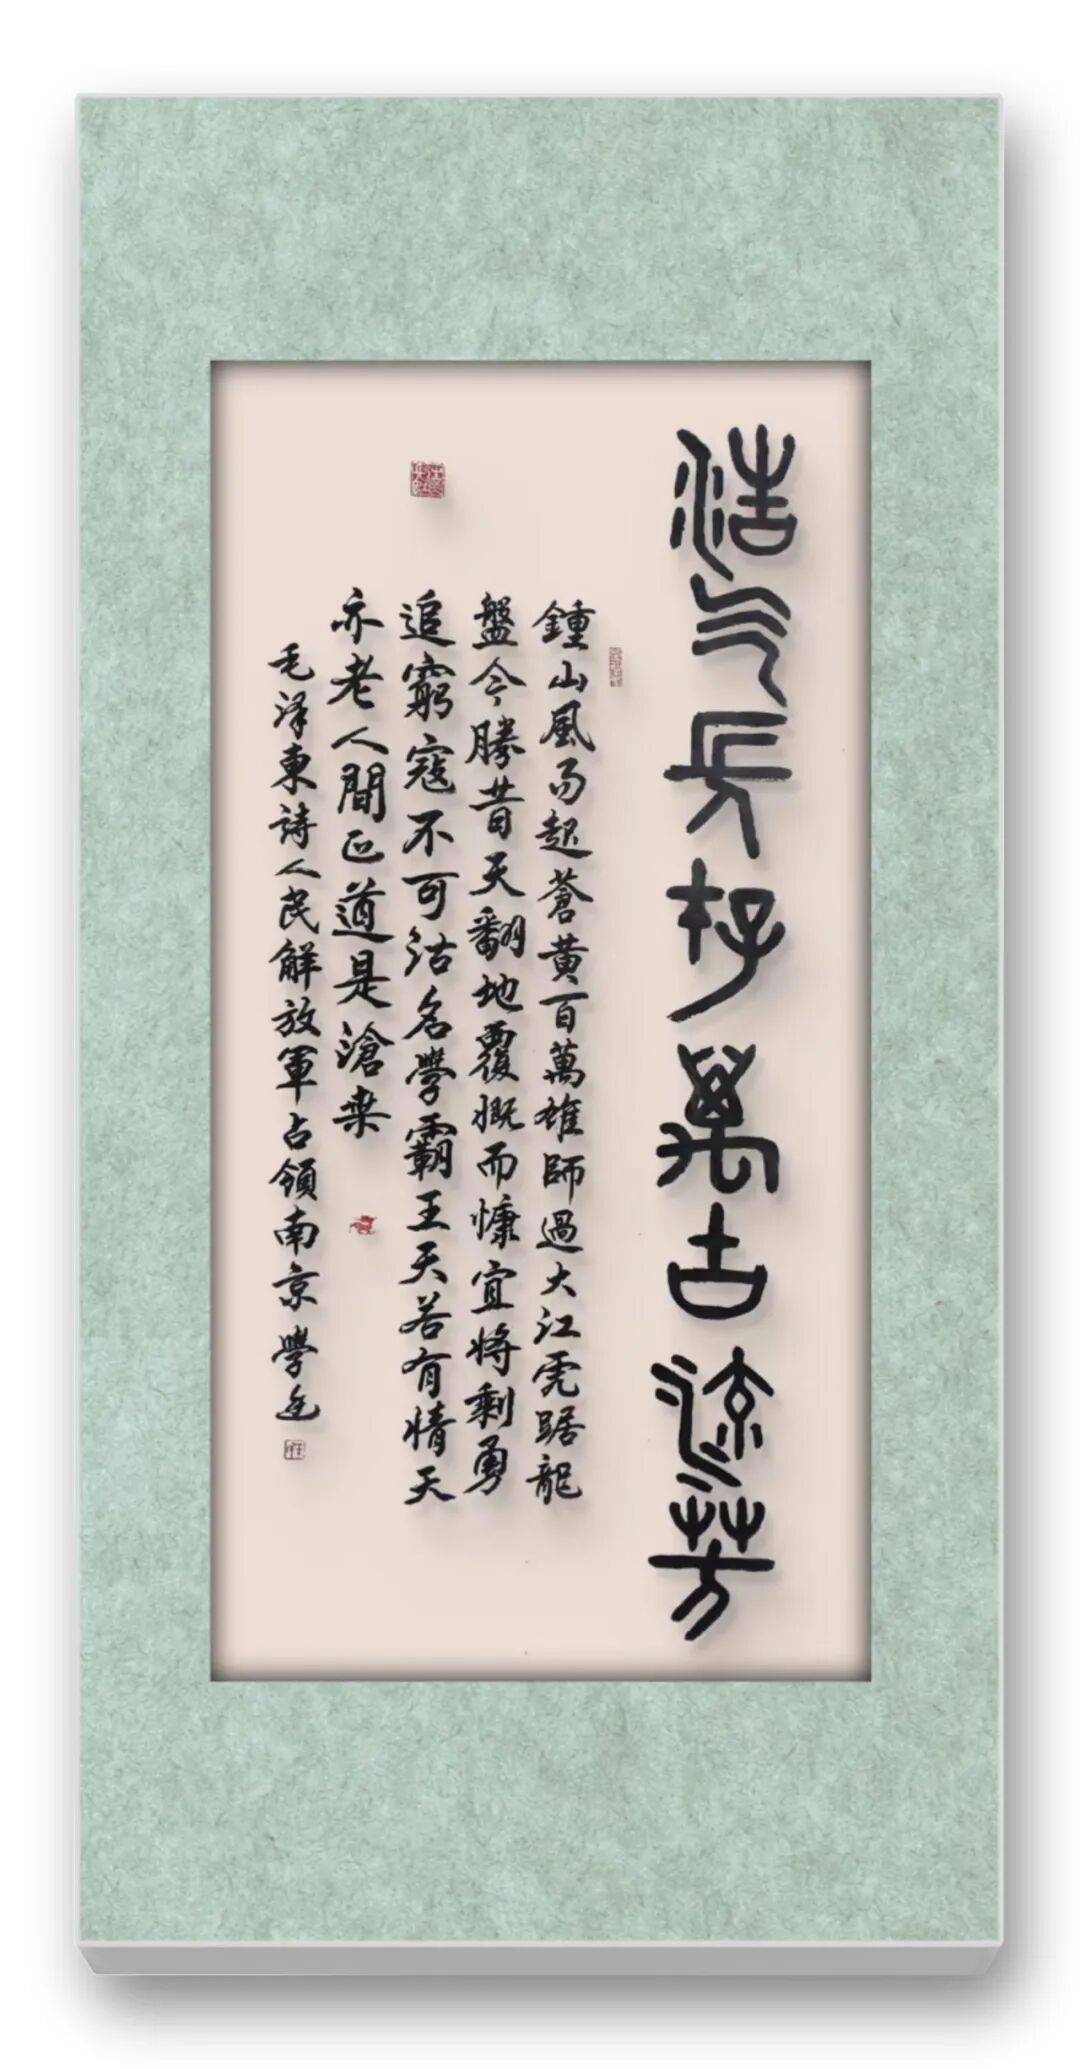 浩气长存萬古流芳
鍾山風雨起蒼黄百萬雄師過大江虎踞龍
盤今勝昔天翻地覆慨而慷宜将剩勇
追窮寇不可沽名學霸王天若有情天
亦老人間正道是滄桒
毛泽東詩人民解放軍占領南京學廷